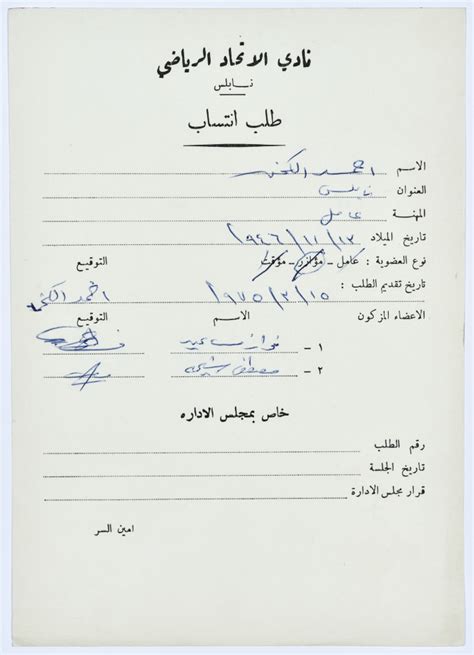 نادي الاتحاد الرياضي
نابلس
طلب انتساب
الاسم احمد الكخن
العنوان نابلس
المهنة عامل
تاريخ الميلاد ١٩٤٦/١١/١٣
نوع العضوية : عامل - مؤازر - مؤقت التوقيع
تاريخ تقديم الطلب : ١٩٧٥/٣/١٥ احمد الكخن
الاعضاء المزكون الاسم التوقيع
١ - فواز
٢ - مصطفى
خاص بمجلس الاداره
رقم الطلب
تاريخ الجلسة
قرار مجلس الادارة
امين السر